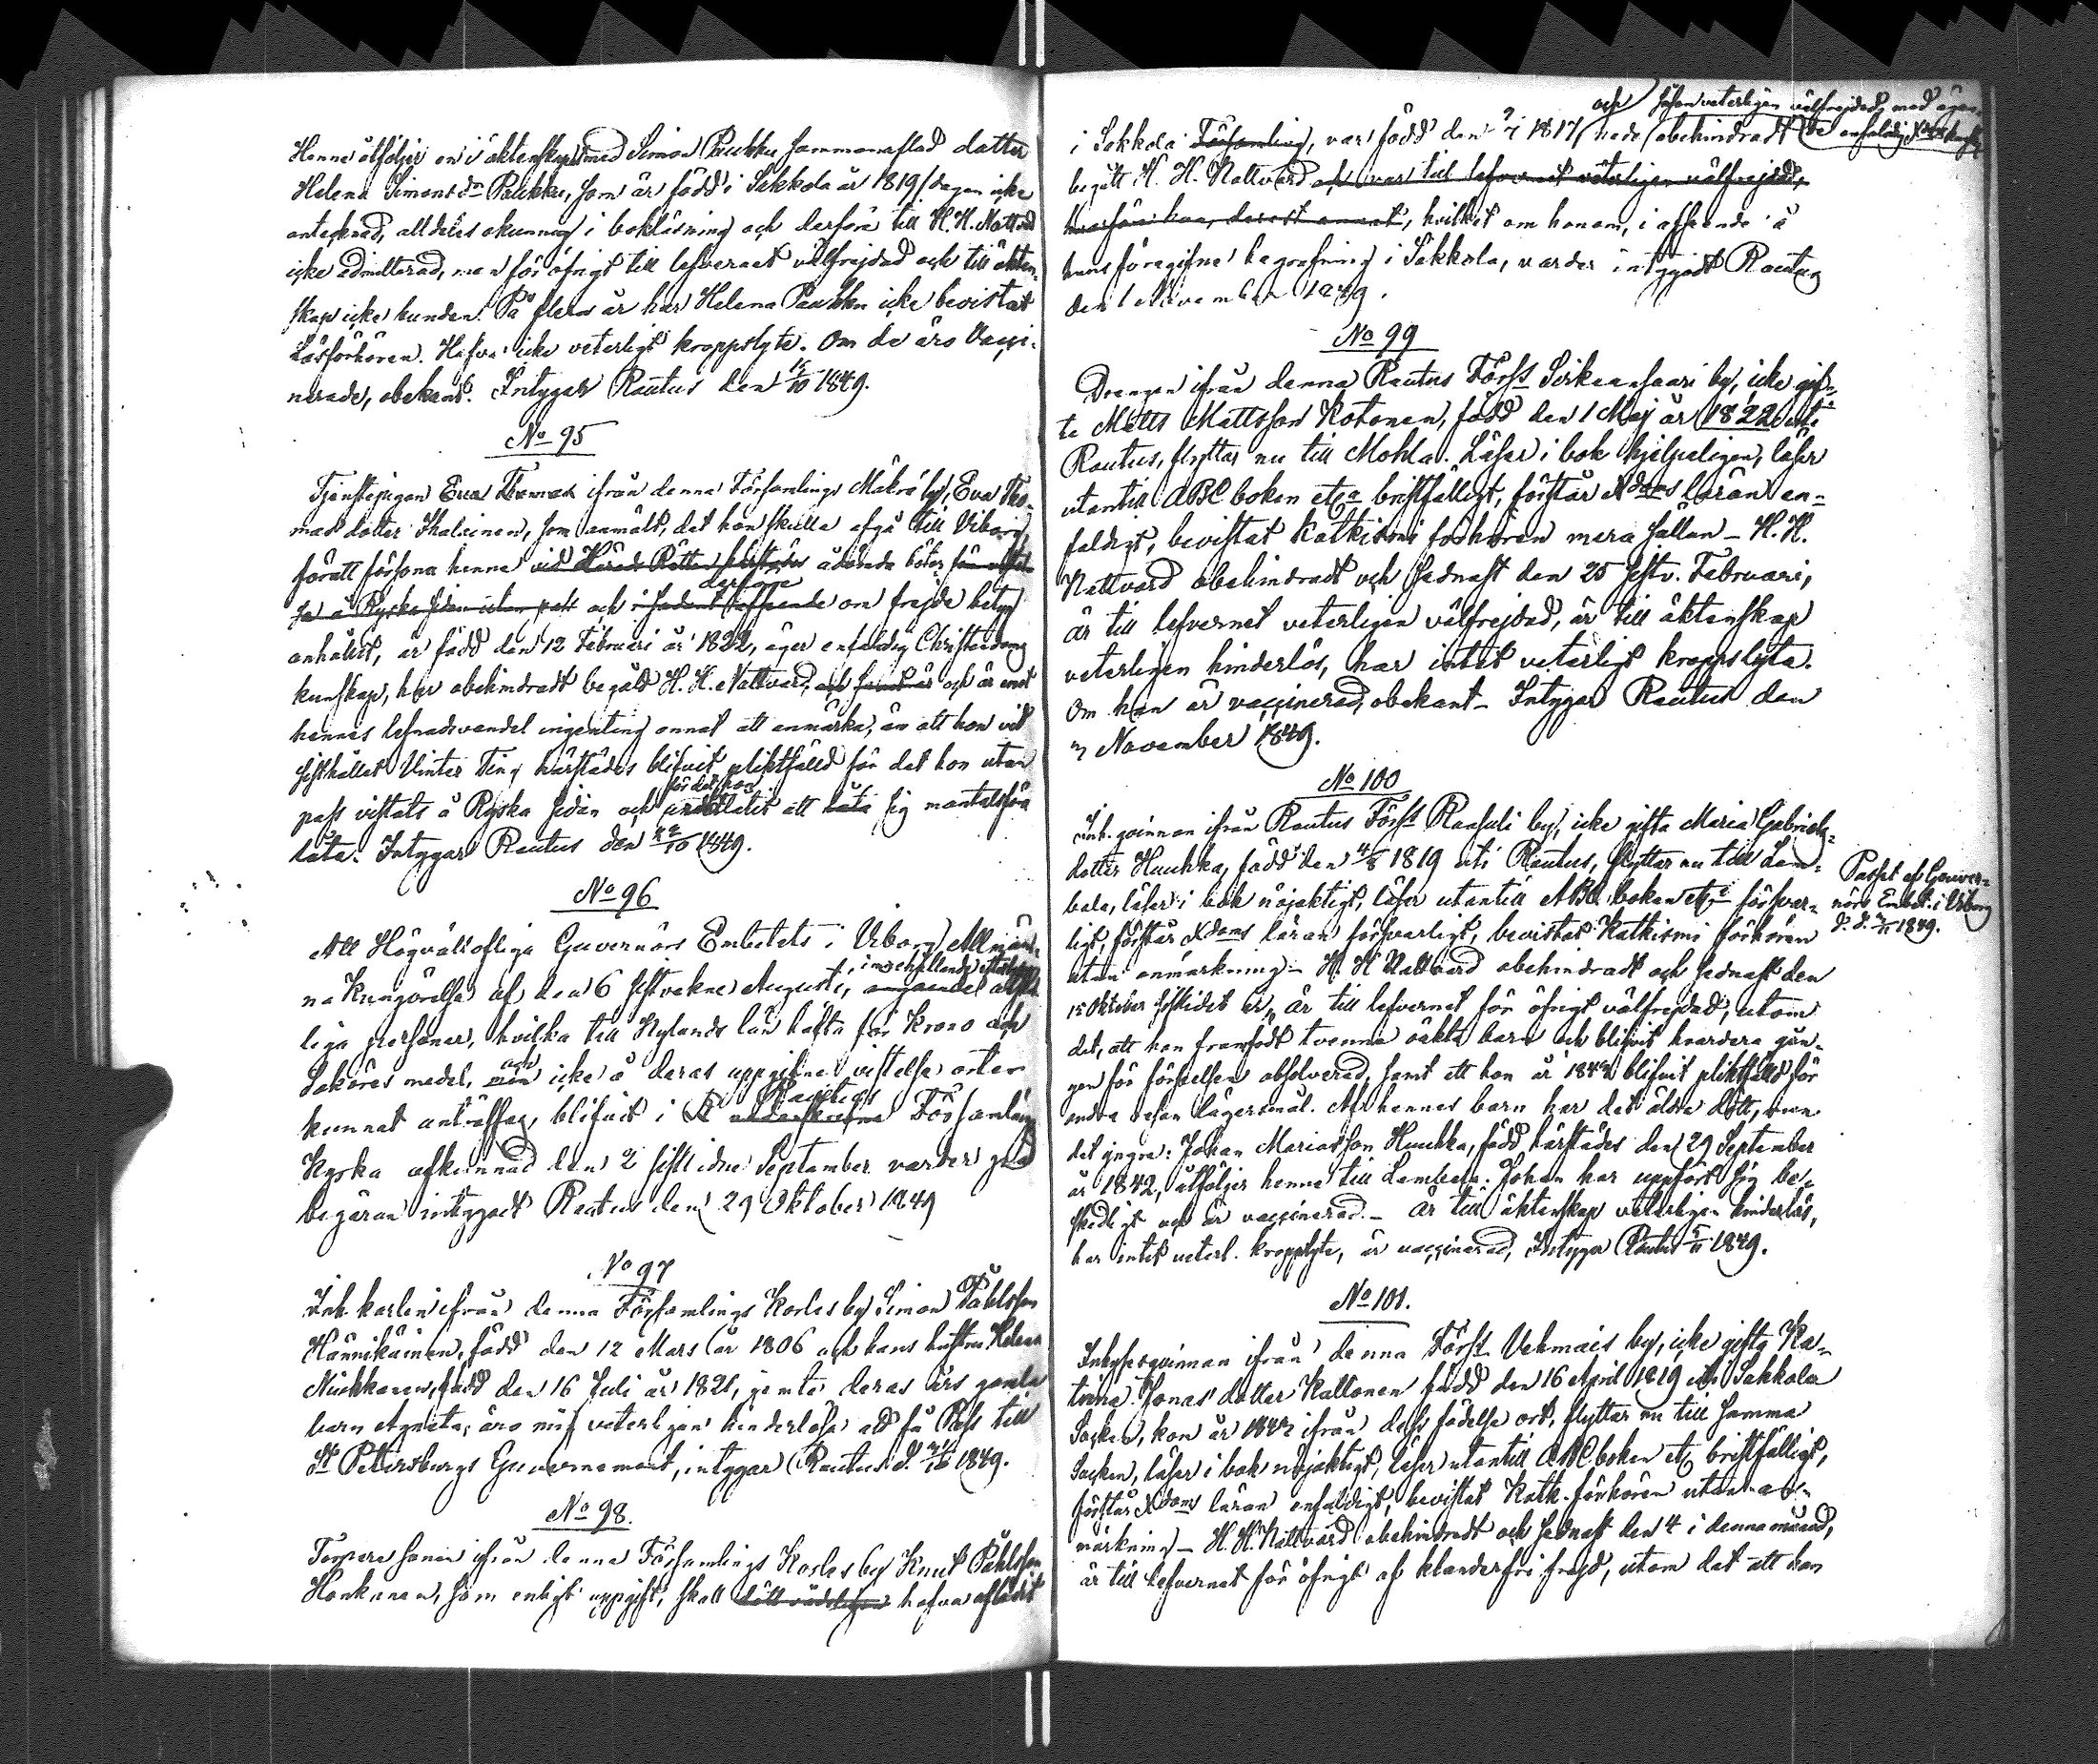 Henne åtföljer en i äktenskap med Simon Paukku sammanaflad dotter
Helena Simonsdr Paukku, som är född i Sakkola år 1819 / dagen icke
antecknad, alldeles okunnig i bokläsning och derföre till H. H. Nattvard
icke admitterad, men för öfrigt till lefvernet välfrejdad och till äkten-
skap icke bunden. På flera år har Helena Paukku icke bevistat
Läsförhören. Hafva icke veterligt kroppslyte. Om de äro vacci-
nerade, obekant. Intygar Rautus den 14/10 1849.
No 95
Tjenstepigan Eva Thomas ifrån denna Församlings Mäkrä by, Eva Tho-
mas dotter Ihalainen, som anmält, det hon skulle afgå till Viborg,
föratt försona henne vid Härads Rätten härstädes ådömda böter
derföre
och i sådant afseende om frejde betyg
anhållit, är född den 12 Februari år 1822, äger enfaldig Christendoms
kunskap, har obehindradt begått H. H. Nattvard, och är emot
hennes lefnadsvandel ingenting annat att anmärka, än att hon vid
sisthållet Vinter Ting härstädes blifvit pliktfälld för det hon utan
för det hon
pass vistats å Ryska sidan och underlåtit att låta sig mantalsföra
låta. Intygar Rautus den 22/10 1849.
No 96
Att Högvälloflige Guvernörs Embetets i Viborg Allmän-
na Kungörelse af den 6 sistvekne Augusti, angående
innehållande
liga personer, hvilka till Nylands län häfta för Krono och
och
Saköres medel, men icke å deras uppgifne vistelse orter
Rautus
kunnat anträffas, blifvit i Församlings
Kyrka afkunnad den 2 sistlidne September varder på
begäran intygadt Rautus den 29 Oktober 1849
No 97
Inh. karlen ifrån denna Församlings Korles by Simon Påhlsson
Hännikäinen, född den 12 Mars år 1806 och hans hustru Helena
Nuikkanen, född den 16 Juli år 1821, jemte deras års gamla
barn Agneta, äro mig veterligen hinderlösa att få Pass till
St Petersburgs Guvernement, intygar Rautus d. 31/10 1849.
No 98.
Torpare sonen ifrån denna Församlings Korles by Knut Påhlsson
Honkanen, som enligt uppgift, skall hafva aflidit
och såsom veterligen välfrejdad, med ägan-
de enfaldig Xdoms kunskap
i Sakkola Församling, var född den 2/7 1817 hade obehindradt
begått H. H. Nattvard och var till lefvernet veterligen välfrejdad,
hvilket om honom, i afseende å
hans föregifne begrafning i Sakkola, varder intygadt Rautus
den 1 November 1849.
No 99
Drengen ifrån denna Rautus Förs:s Sirkeansaari by, icke gif-
te Matts Mattsson Kotonen, född den 1 Maj år 1822 uti
Rautus, flyttar nu till Mohla. Läser i bok hjelpeligen, läser
utantill ABC boken etca bristfälligt, förstår Xdoms läran en-
faldigt, bevistat Katkismi förhören mera sällan – H. H.
Nattvard obehindradt och sednast den 25 sistv. Februari,
är till lefvernet veterligen välfrejdad, är till äktenskap
veterligen hinderlös, har intet veterligt kroppslyte.
Om han är vaccinerad, obekant – Intygar Rautus den
3 November 1849.
No 100
Inh. qvinnan ifrån Rautus Förs:s Raasuli by, icke gifta Maria Gabriels-
dotter Huuhka, född den 4/8 1819 uti Rautus, flyttar nu till Lem-
bala, läser i bok nöjaktigt, läser utantill ABC boken etc försvar-
ligt, förstår Xdoms läran försvarligt, bevistat Katkismi förhören
utan anmärkning – H. H Nattvard obehindradt och sednast den
15 Oktober sistlidet år, är till lefvernet för öfrigt välfrejdad, utom
det, att hon framfödt tvenne oäkta barn och blifvit hvardera gån-
gen för förseelsen absolverad, samt att hon år 1843 blifvit pliktfälld för
andra resan lägersmål. Af hennes barn har det äldre dött, men
det yngre: Johan Mariasson Huuhka, född härstädes den 29 September
år 1842, åtföljer henne till Lembala. Johan har uppfört sig be-
skedligt och är vaccinerad. – Är till äktenskap veterligen hinderlös,
har intet veterl. kroppslyte, är vaccinerad, Intygar Rautus 5/11 1849.
Passet af Guver-
nörs Embet. i Viborg
d. d. 3/11 1849.
No 101.
Inhyseqvinnan ifrån denna Förs:s Vehmais by, icke gifta Ka-
trina Jonas dotter Kaltonen född den 16 April 1819 uti Sakkola
Socken, kom år 1843 ifrån dess födelse ort, flyttar nu till samma
Socken, läser i bok nöjaktigt, läser utantill ABC boken etc bristfälligt,
förstår Xdoms läran enfaldigt, bevistat Katk. förhören utan an-
märkning – H. H. Nattvard obehindradt och sednast den 4 i denna månad,
är till lefvernet för öfrigt af klanderfri frejd, utom det att hon